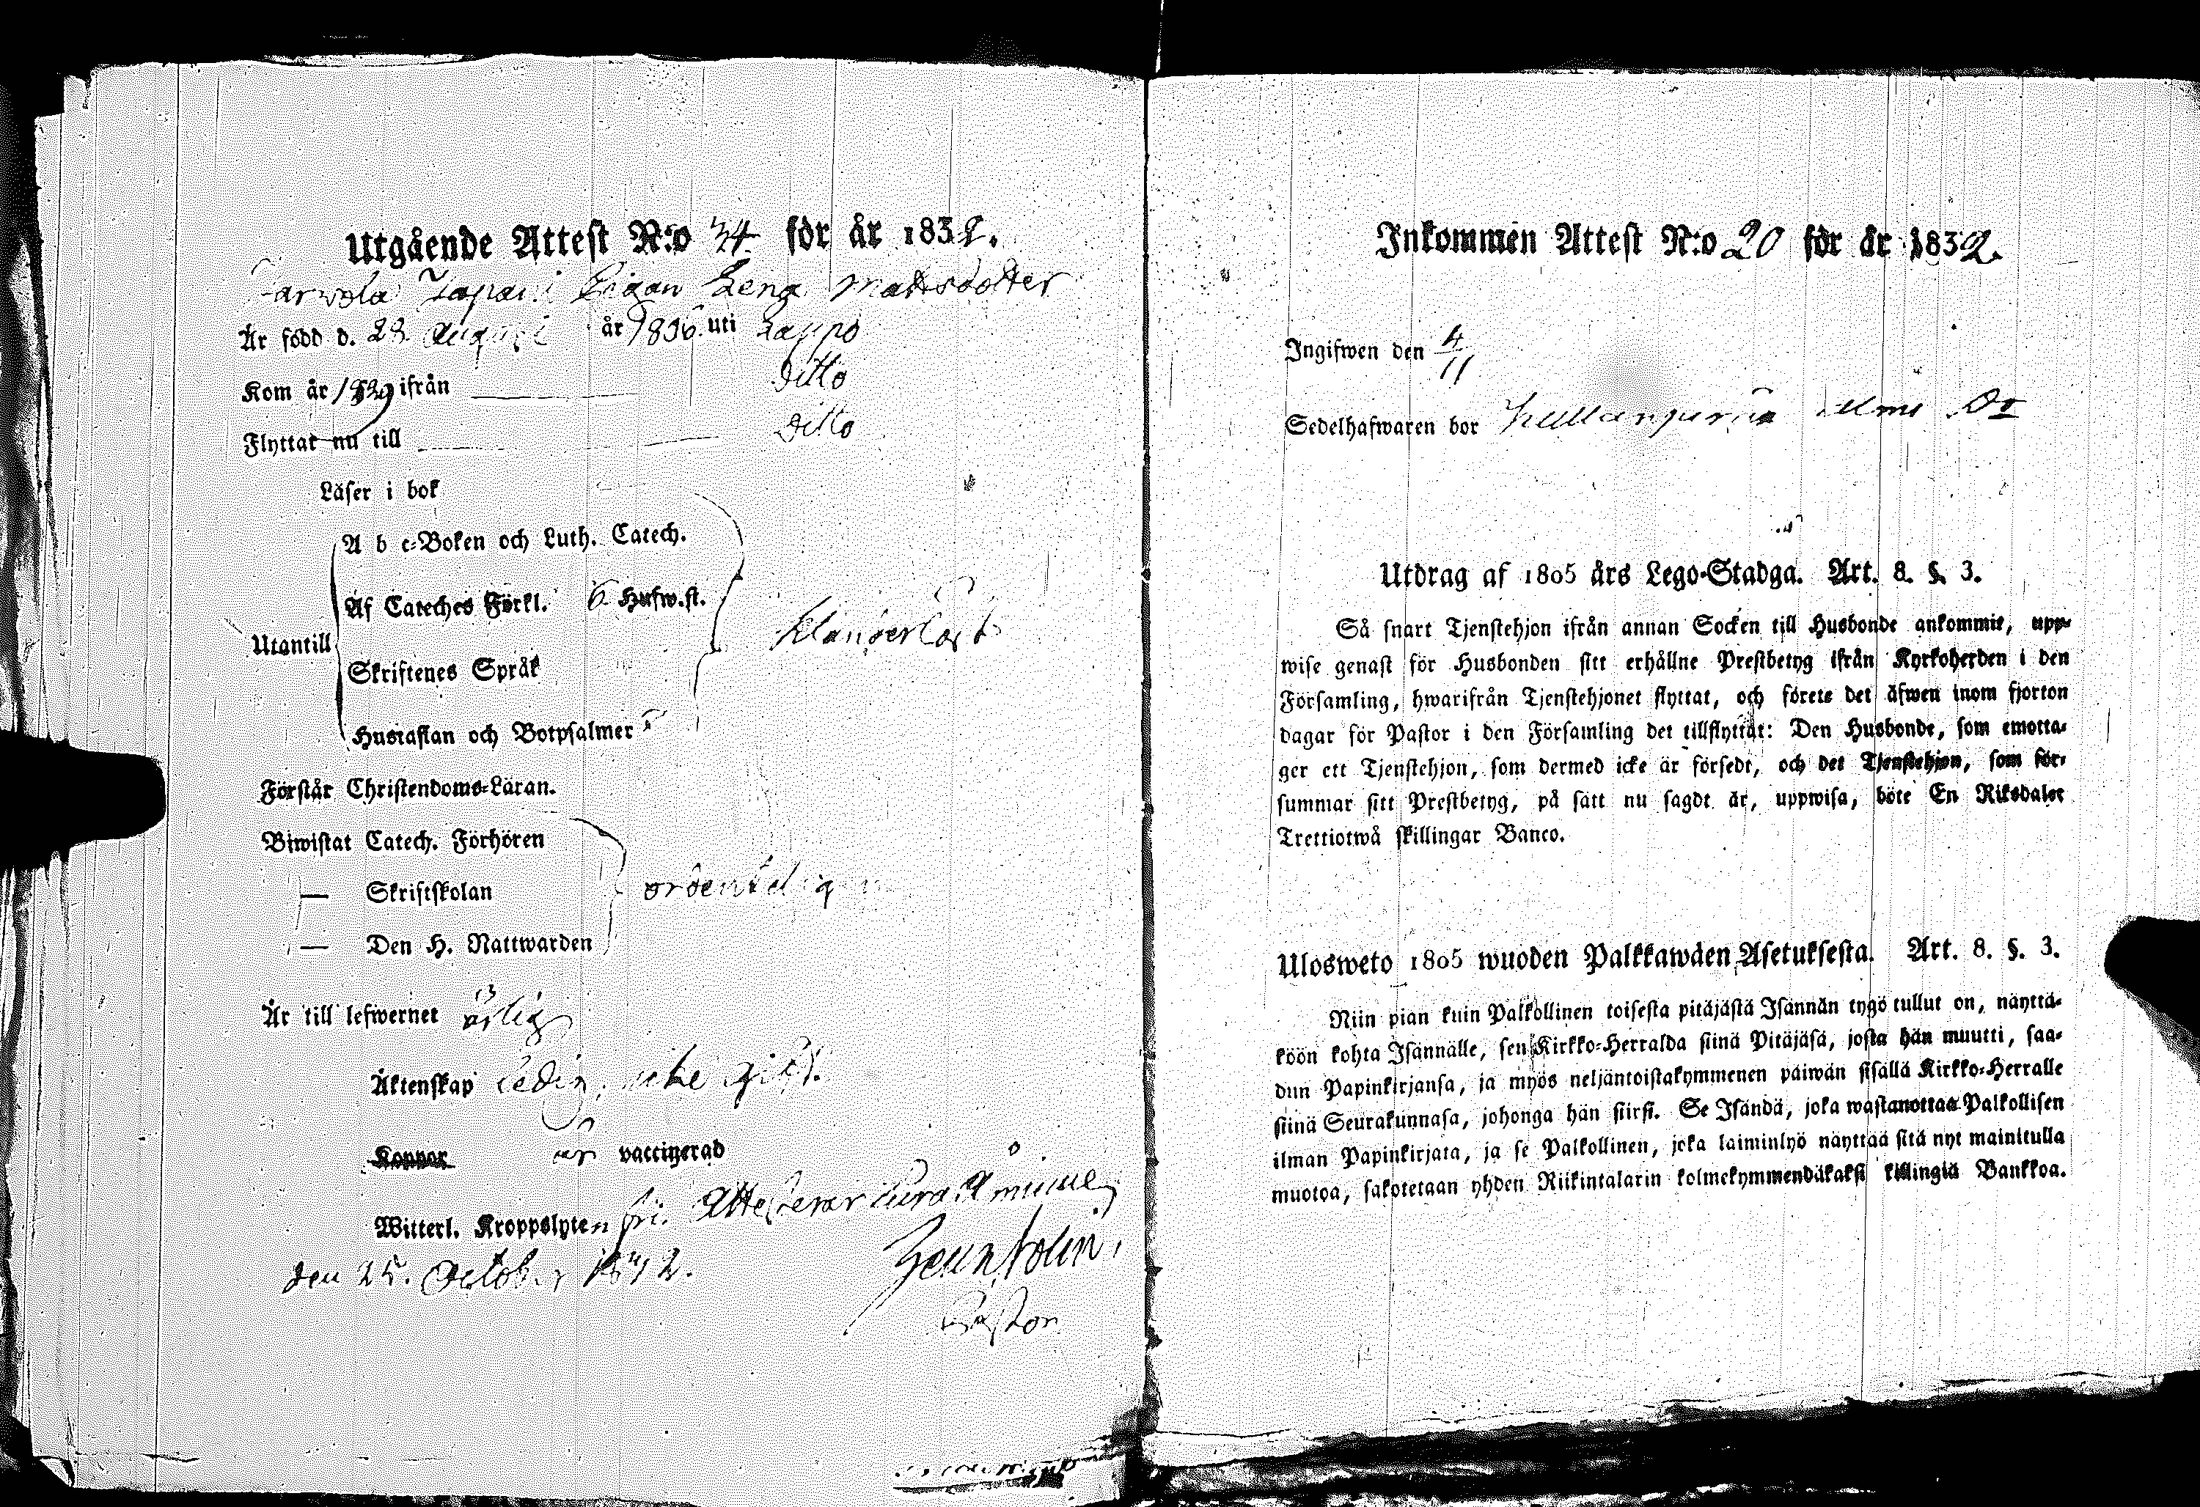 Utgående Attest N:o 34 för år 1832.
Pigan Lena Mattsdotter
Är född d. 28 Augusti år uti Lappo
Kom år ifrån Ditto
Flyttar nu till Ditto
Läser i bok
A b c-Boken och Luth. Catech.
Af Cateches Förkl. 6 Hufw.st.
Utantill klanderlöst
Skriftenes Språk
Hustaflan och Botpsalmer
Förstår Christendoms-Läran.
Biwistat Catech. Förhören
— Skriftskolan ordentelig
— Den H. Nattwarden
Är till lefwernet ärlig
Äktenskap ledig, icke gift.
Koppor är vaccinerad
Witterl. Kroppslyten fri. Attesterar
den 25. October
Pastor
Inkommen Attest N:o 20 för år 1832.
Ingifwen den 4/11
Sedelhafwaren bor
Utdrag af 1805 års Lego-Stadga. Art. 8. §. 3.
Så snart Tjenstehjon ifrån annan Socken till Husbonde ankommit, upp-
wise genast för Husbonden sitt erhållne Prestbetyg ifrån Kyrkoherden i den
Församling, hwarifrån Tjenstehjonet flyttat, och förete det äfwen inom fjorton
dagar för Pastor i den Församling det tillflyttat: Den Husbonde, som emotta-
ger ett Tjenstehjon, som dermed icke är försedt, och det Tjenstehjon, som för-
summar sitt Prestbetyg, på sätt nu sagdt är, uppwisa, böte En Riksdaler
Trettiotwå skillingar Banco.
Ulosweto 1805 wuoden Palkkawäen Asetuksesta. Art. 8. §. 3.
Niin pian kuin Palkollinen toisesta pitäjästä Isännän tygö tullut on, näyttä-
köön kohta Isännälle, sen Kirkko-Herralda siinä Pitäjäsä, josta hän muutti, saa-
dun Papinkirjansa, ja myös neljäntoistakymmenen päiwän sisällä Kirkko-Herralle
siinä Seurakunnasa, johonga hän siirsi. Se Isändä, joka wastanottaa Palkollisen
ilman Papinkirjata, ja se Palkollinen, joka laiminlyö näyttää sitä nyt mainitulla
muotoa, sakotetaan yhden Riikintalarin kolmekymmendäkaksi killingiä Bankkoa.